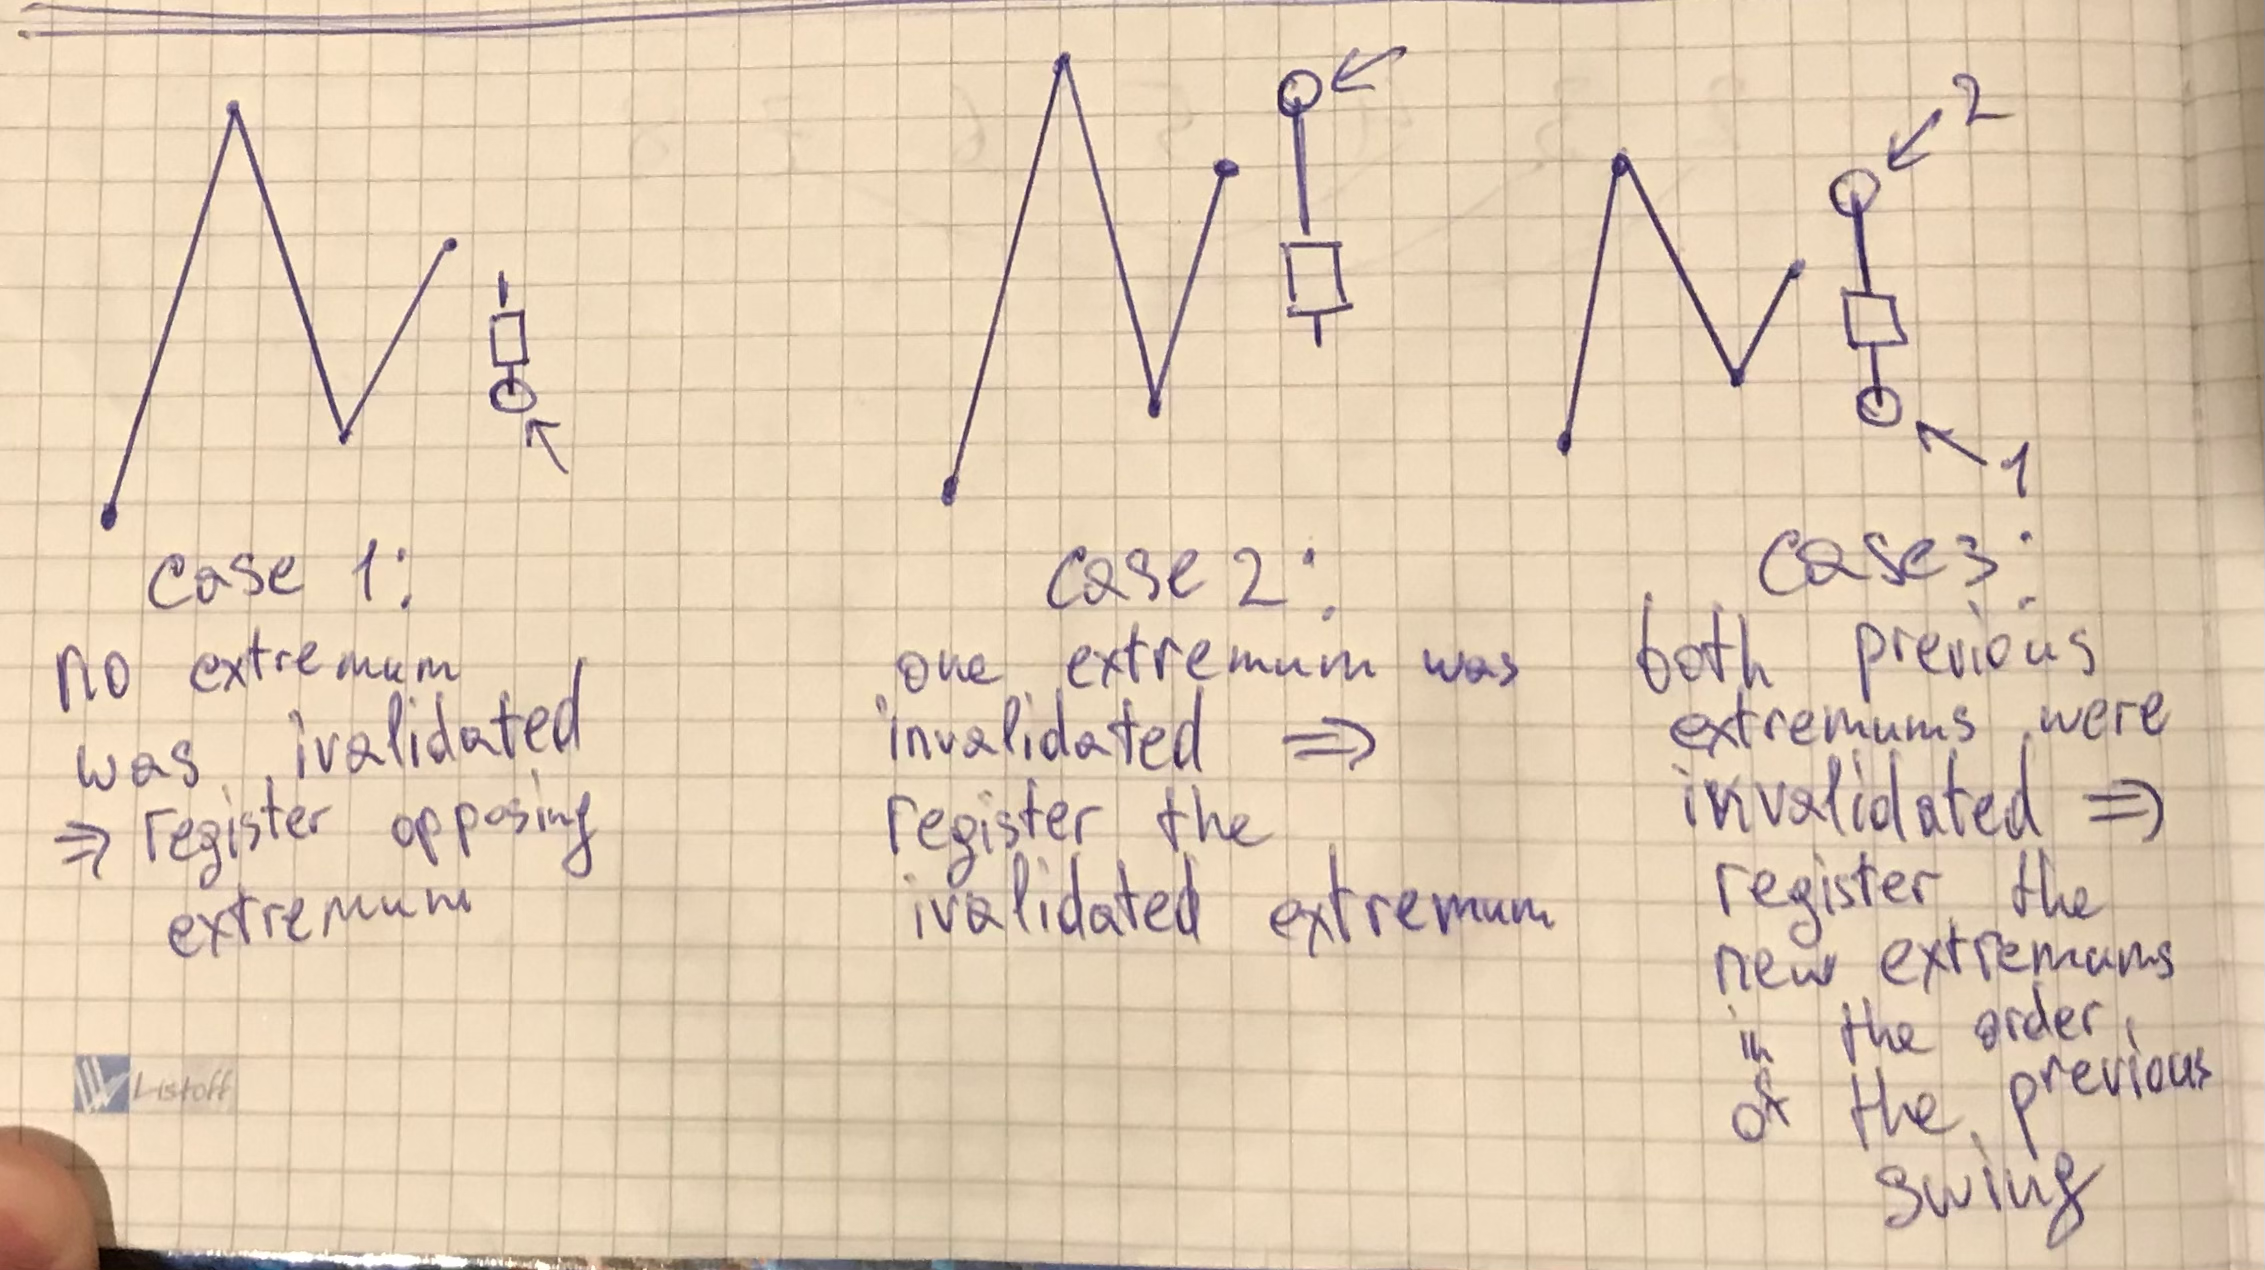 2
1
case 1:
no extremum
was ivalidated
⇒ register opposing
extremum
case 2:
one extremum was
invalidated ⇒
register the
ivalidated extremum
case 3:
both previous
extremums were
invalidated ⇒
register the
new extremums
in the order
of the previous
swing
Listoff